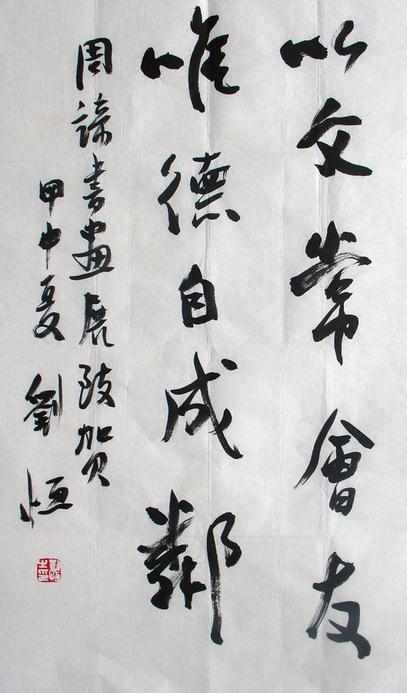 以文常會友
唯德自成鄰
周諦書畫展致賀
甲申夏 劉恒